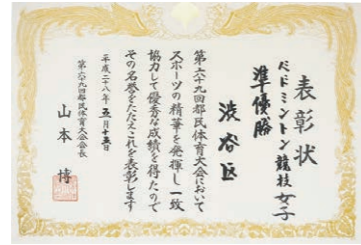 表彰状
バドミントン競技女子
準優勝
渋谷区
第六十九回都民体育大会において
スポーツの精華を発揮し一致
協力して優秀な成績を得たので
その名誉をたたえこれを表彰します
平成二十八年五月十五日
第六十九回都民体育大会会長
山本博